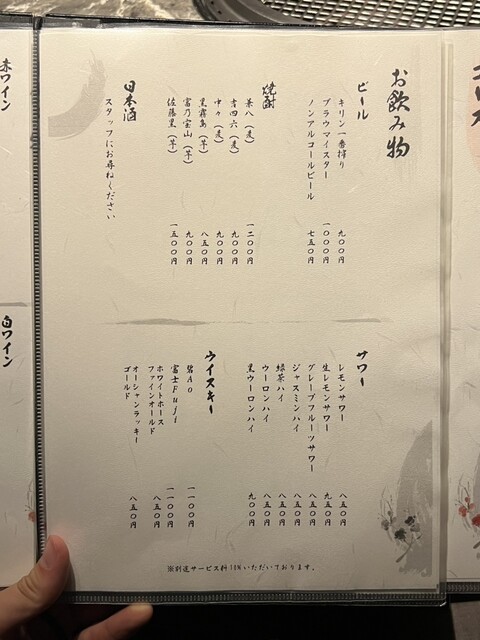 お飲み物
ビール
キリン一番搾り 九〇〇円
ブラウマイスター 一〇〇〇円
ノンアルコールビール 七五〇円
焼酎
兼八(麦) 一二〇〇円
吉四六(麦) 九〇〇円
中々(麦) 九〇〇円
黒霧島(芋) 八五〇円
富乃宝山(芋) 九〇〇円
佐藤黒(芋) 一五〇〇円
日本酒
スタッフにお尋ねください
サワー
レモンサワー 八五〇円
生レモンサワー 九五〇円
グレープフルーツサワー 八五〇円
ジャスミンハイ 八五〇円
緑茶ハイ 八五〇円
ウーロンハイ 八五〇円
黒ウーロンハイ 九〇〇円
ウイスキー
碧Ao 一一〇〇円
富士Fuji 一一〇〇円
ホワイトホース
ファインオールド 八五〇円
オーシャンラッキー
ゴールド 八五〇円
※別途サービス料10%いただいております。
赤ワイン
白ワイン